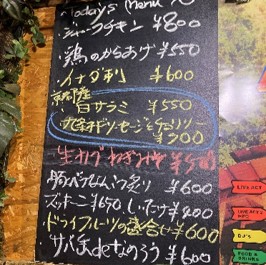 Today's Menu
・ジャークチキン ¥800
・鶏のからあげ ¥550
・イナダ刺 ¥600
・白サラミ ¥550
ソーセージとチョリソー
¥700
・生カブ ねぎみそ ¥500
・豚バラなんこつ煮り ¥600
・ズッキーニ ¥650 ・しいたけ ¥400
・ドライフルーツの盛合せ ¥600
・サバ ¥600
LIVE ACT
DJ's
FOOD & DRINKS